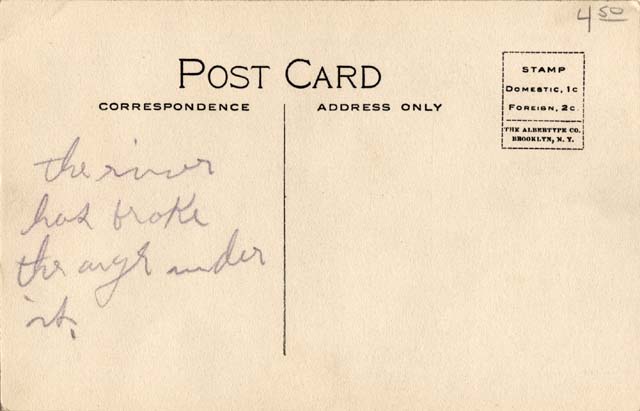 4 50
POST CARD
CORRESPONDENCE
ADDRESS ONLY
STAMP
DOMESTIC, 1c
FOREIGN, 2c.
THE ALBERTYPE CO.
BROOKLYN, N. Y.
the river
has broke
the under
it.